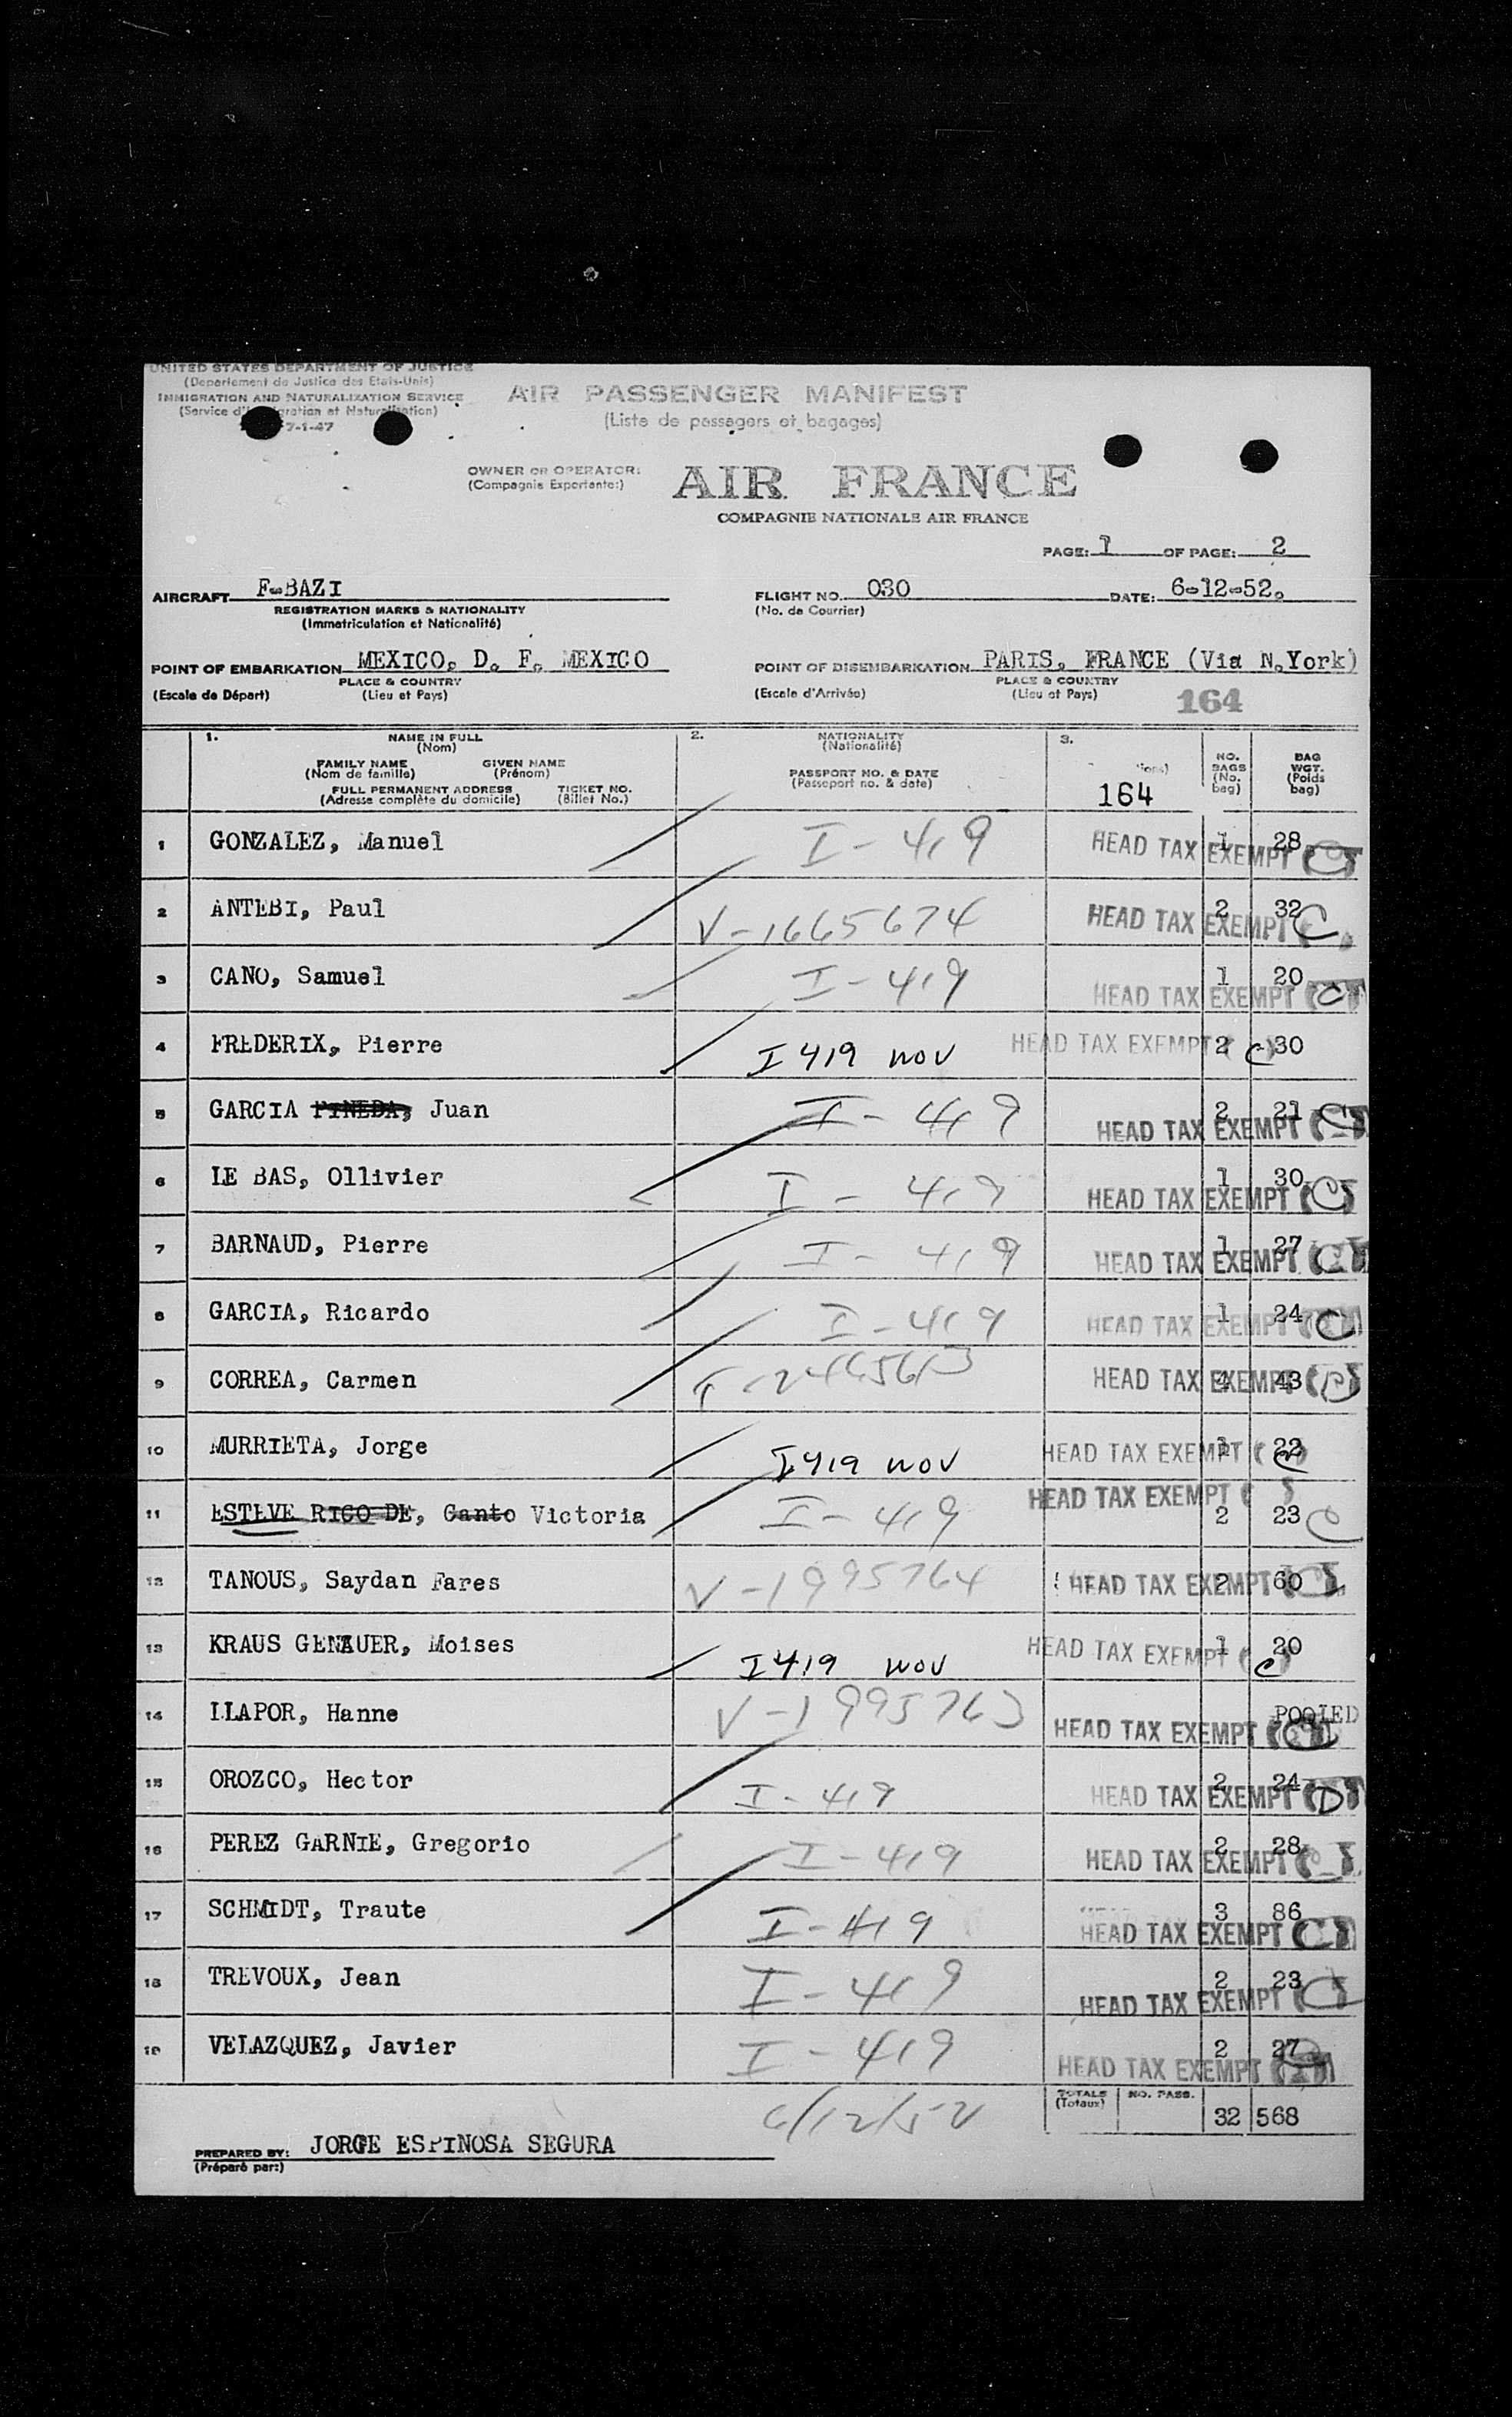 UNITED STATES DEPARTMENT OF JUSTICE
(Departement de Justice des Etats-Unis)
IMMIGRATION AND NATURALIZATION SERVICE
(Service d' et Naturalisation)
7-1-47
AIR PASSENGER MANIFEST
(Liste de passagers et bagages)
OWNER OR OPERATOR:
(Compagnie Exportante:)
AIR FRANCE
COMPAGNIE NATIONALE AIR FRANCE
PAGE: 1 OF PAGE: 2
AIRCRAFT F-BAZI FLIGHT NO. 030 DATE: 6-12-52.
REGISTRATION MARKS & NATIONALITY (No. de Courrier)
(Immatriculation et Nationalité)
POINT OF EMBARKATION MEXICO, D. F. MEXICO POINT OF DISEMBARKATION PARIS, FRANCE (Via N.York)
PLACE & COUNTRY PLACE & COUNTRY
(Escale de Départ) (Lieu et Pays) (Escale d'Arrivée) (Lieu et Pays) 164
1. NAME IN FULL 2. NATIONALITY 3.
(Nom) (Nationalité)
FAMILY NAME GIVEN NAME NO. BAGS BAG WGT.
(Nom de famille) (Prénom) PASSPORT NO. & DATE (No. bag) (Poids bag)
FULL PERMANENT ADDRESS TICKET NO. (Passeport no. & date)
(Adresse complète du domicile) (Billet No.) 164
1 GONZALEZ, Manuel I-419 HEAD TAX EXEMPT 1 28
2 ANTEBI, Paul V-1665674 HEAD TAX EXEMPT 2 32 C
3 CANO, Samuel I-419 HEAD TAX EXEMPT 1 20 C
4 FREDERIX, Pierre I 419 NOV HEAD TAX EXEMPT 2 C 30
5 GARCIA PINEDA, Juan I-419 HEAD TAX EXEMPT 2 21 C
6 LE BAS, Ollivier I-419 HEAD TAX EXEMPT 1 30 C
7 BARNAUD, Pierre I-419 HEAD TAX EXEMPT 1 27 C
8 GARCIA, Ricardo I-419 HEAD TAX EXEMPT 1 24 C
9 CORREA, Carmen HEAD TAX EXEMPT 4 43
10 MURRIETA, Jorge I419 NOV HEAD TAX EXEMPT 22 C
11 ESTEVE RICO DE, Canto Victoria I-419 HEAD TAX EXEMPT 2 23 C
12 TANOUS, Saydan Fares V-1995764 HEAD TAX EXEMPT 2 60
13 KRAUS GENAUER, Moises I419 NOV HEAD TAX EXEMPT 1 20 C
14 LLAPOR, Hanne V-1995763 HEAD TAX EXEMPT POOLED
15 OROZCO, Hector I-419 HEAD TAX EXEMPT 2 24 D
16 PEREZ GARNIE, Gregorio I-419 HEAD TAX EXEMPT 2 28 C
17 SCHMIDT, Traute I-419 HEAD TAX EXEMPT 3 86 C
18 TREVOUX, Jean I-419 HEAD TAX EXEMPT 2 23 C
19 VELAZQUEZ, Javier I-419 HEAD TAX EXEMPT 2 27
6/12/52 TOTALS (Totaux) NO. PASS. 32 568
PREPARED BY: JORGE ESPINOSA SEGURA
(Préparé par:)